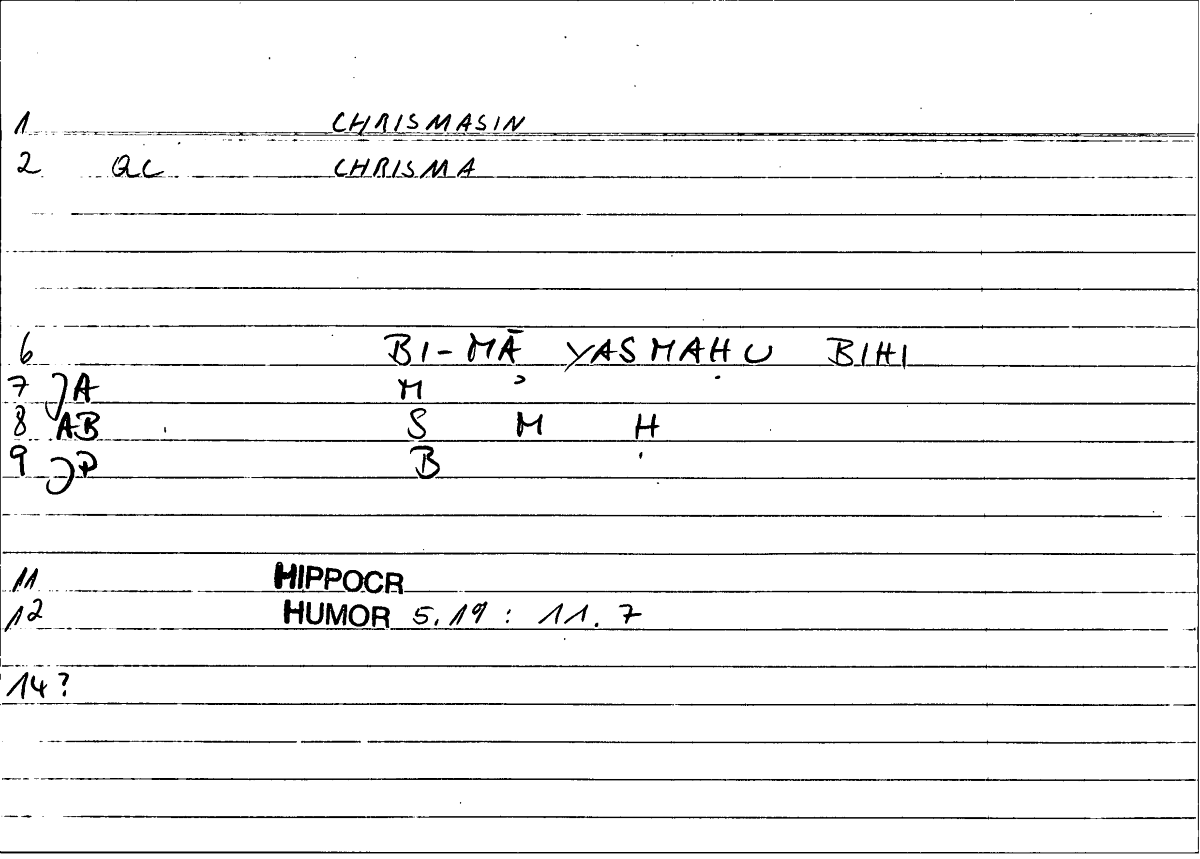 1 CHRISMASIN
2 QC CHRISMA
6 BI-MĀ YASMAḤU BIHI
7 JA M ʾ
8 AB S M Ḥ
9 JP B
11 HIPPOCR
12 HUMOR 5.19 : 11.7
14?